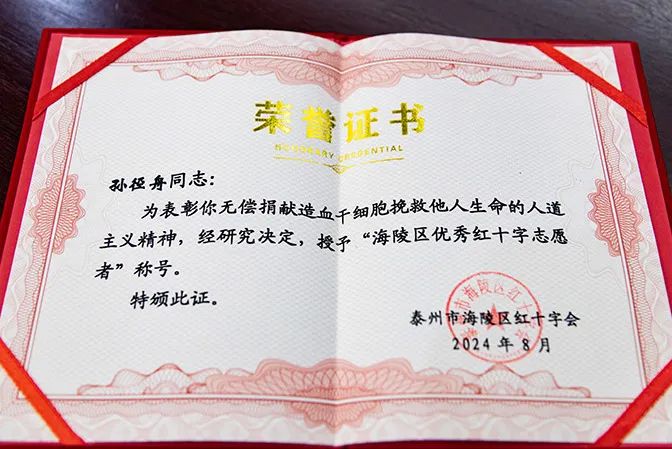 荣誉证书
HONORARY CREDENTIAL
孙径舟同志:
为表彰你无偿捐献造血干细胞挽救他人生命的人道
主义精神，经研究决定，授予“海陵区优秀红十字志愿
者”称号。
特颁此证。
泰州市海陵区红十字会
2024年8月
泰州市海陵区红十字会